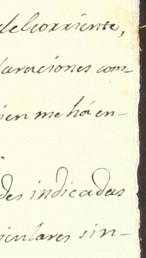 del corriente,
laraciones con-
ien me há en-
des indicadas
iculares sin-